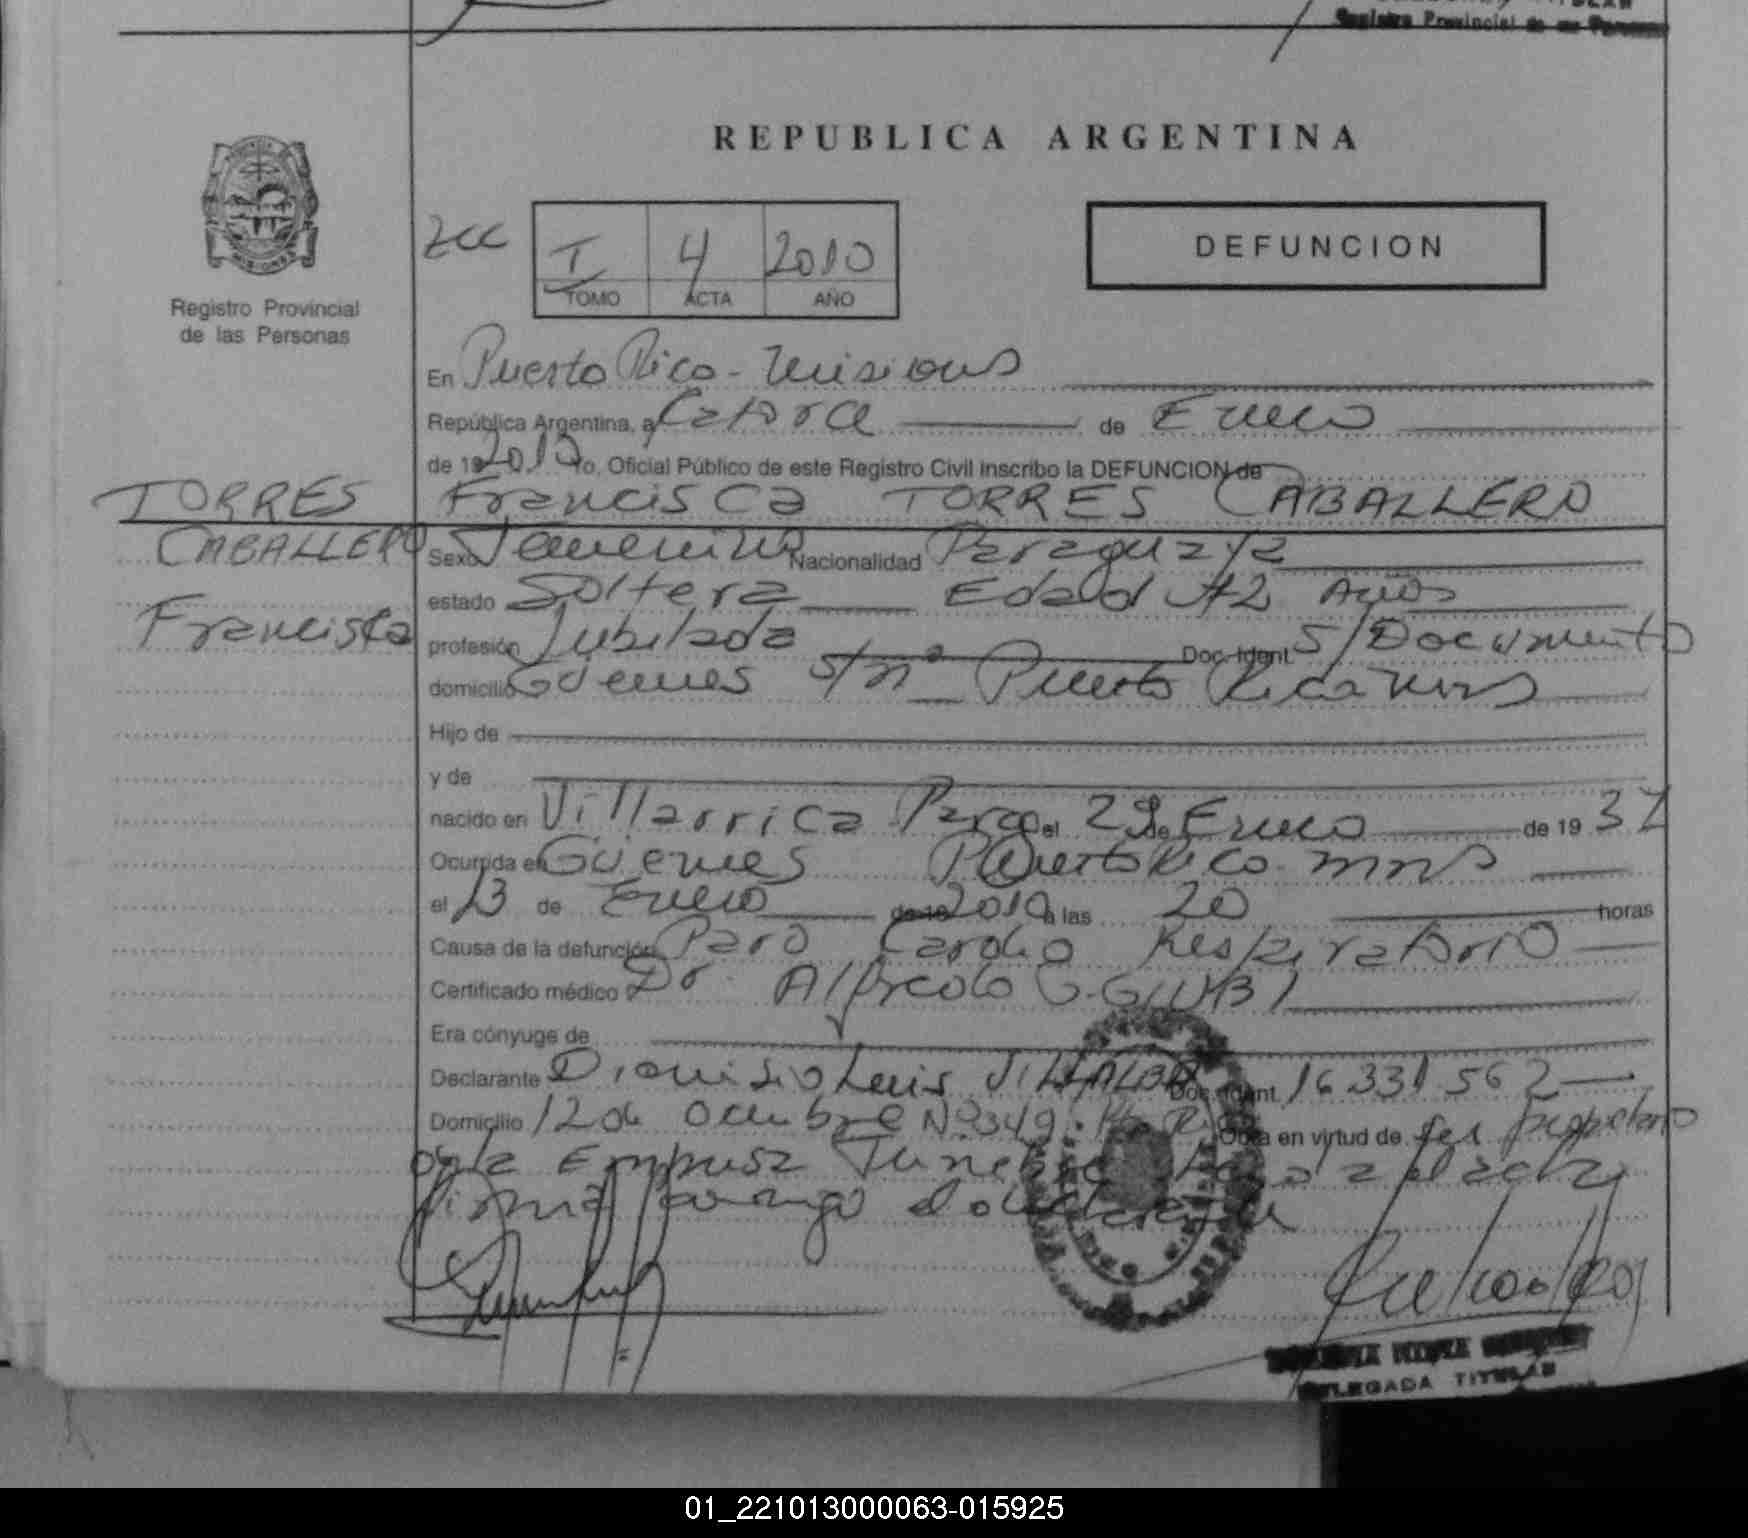 Registro Provincial de las Personas
REPUBLICA ARGENTINA
T 4 2010
TOMO ACTA AÑO
DEFUNCION
MISIONES
Registro Provincial
de las Personas
En Puerto Rico - Misiones
República Argentina, a Catorce de Enero
de 19 2010 Yo, Oficial Público de este Registro Civil inscribo la DEFUNCION de
TORRES Francisca TORRES CABALLERO
CABALLERO Sexo Femenino Nacionalidad Paraguaya
estado Soltera Edad 72 Años
Francisca profesión Jubilada Doc. Ident. S/Documento
domicilio Güemes s/nº Puerto Rico Mns
Hijo de
y de
nacido en Villarrica Parg el 29 de Enero de 19 37
Ocurrida en Güemes Puerto Rico - mns
el 13 de Enero de 19 2010 a las 20 horas
Causa de la defunción Paro Cardio Respiratorio
Certificado médico Dr. Alfredo G.
Era cónyuge de
Declarante Dionisio Luis VILLALBA Doc. Ident. 16 331 562
Domicilio 12 de Octubre Nº 349 Obra en virtud de ser propietario
de la Empresa Funebre el acta
firma conmigo el declarante
DELEGADA TITULAR
01_221013000063-015925